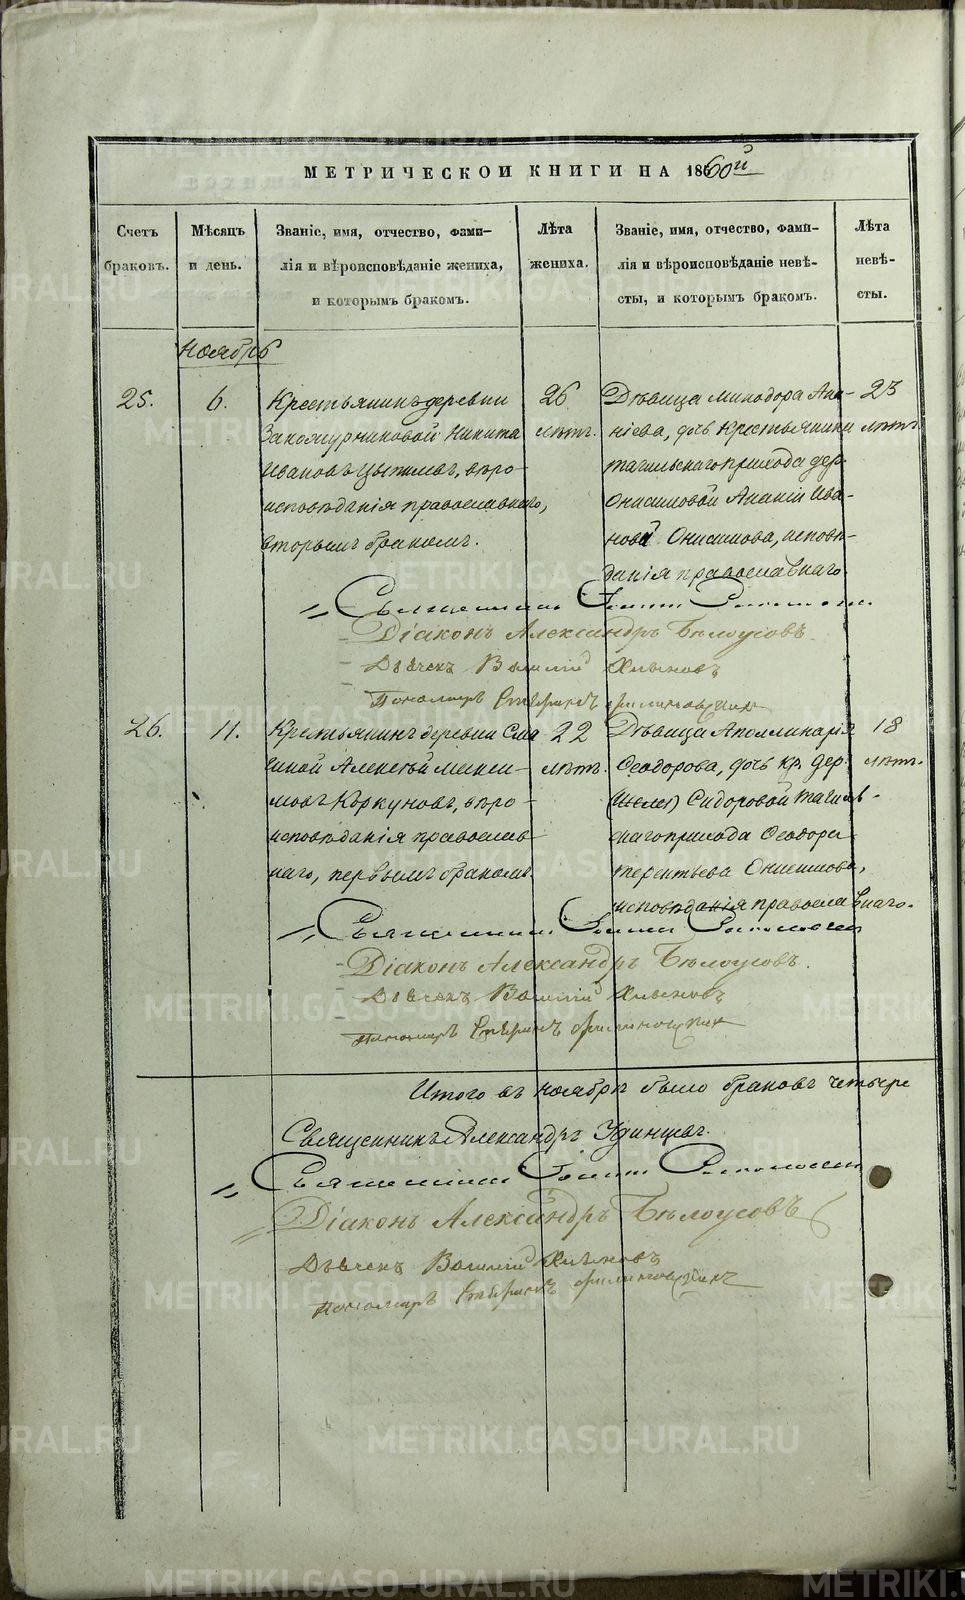 МЕТРИЧЕСКОЙ КНИГИ НА 1860й
Счетъ браковъ.
Мѣсяцъ и день.
Званіе, имя, отчество, фами-
лія и вѣроисповѣданіе жениха,
и которымъ бракомъ.
Лѣта жениха.
Званіе, имя, отчество, фами-
лія и вѣроисповѣданіе невѣ-
сты, и которымъ бракомъ.
Лѣта невѣ-
сты.
Ноябрь
25.
6.
Крестьянинъ деревни
Закожурниковой Никита
Ивановъ Цыпинъ, вѣро-
исповѣданія православнаго,
вторымъ бракомъ.
26
лѣтъ.
Дѣвица Минодора Ана-
ніева, дочь крестьянина
тагильскаго прихода дер.
Онисимовой Ананіи Ива-
нова Онисимова, исповѣ-
данія православнаго.
23
лѣтъ
Священникъ Іоаннъ
Діаконъ Александръ Бѣлоусовъ.
Дьячекъ Василій Хлыновъ
Пономарь
26.
11.
Крестьянинъ деревни
Алексѣй Макси-
мовъ Коркуновъ, вѣро-
исповѣданія православ-
наго, первымъ бракомъ.
22
лѣтъ.
Дѣвица Аполлинарія
Ѳеодорова, дочь кр. дер.
Сидоровой тагиль-
скаго прихода Ѳеодора
Терентьева Онисимова,
исповѣданія православнаго.
18
лѣтъ.
Священникъ Іоаннъ
Діаконъ Александръ Бѣлоусовъ.
Дьячекъ Василій Хлыновъ
Пономарь
Итого въ ноябрѣ было браковъ четыре
Священникъ Александръ Удинцевъ.
Священникъ Іоаннъ
Діаконъ Александръ Бѣлоусовъ
Дьячекъ Василій Хлыновъ
Пономарь
METRIKI.GASO-URAL.RU